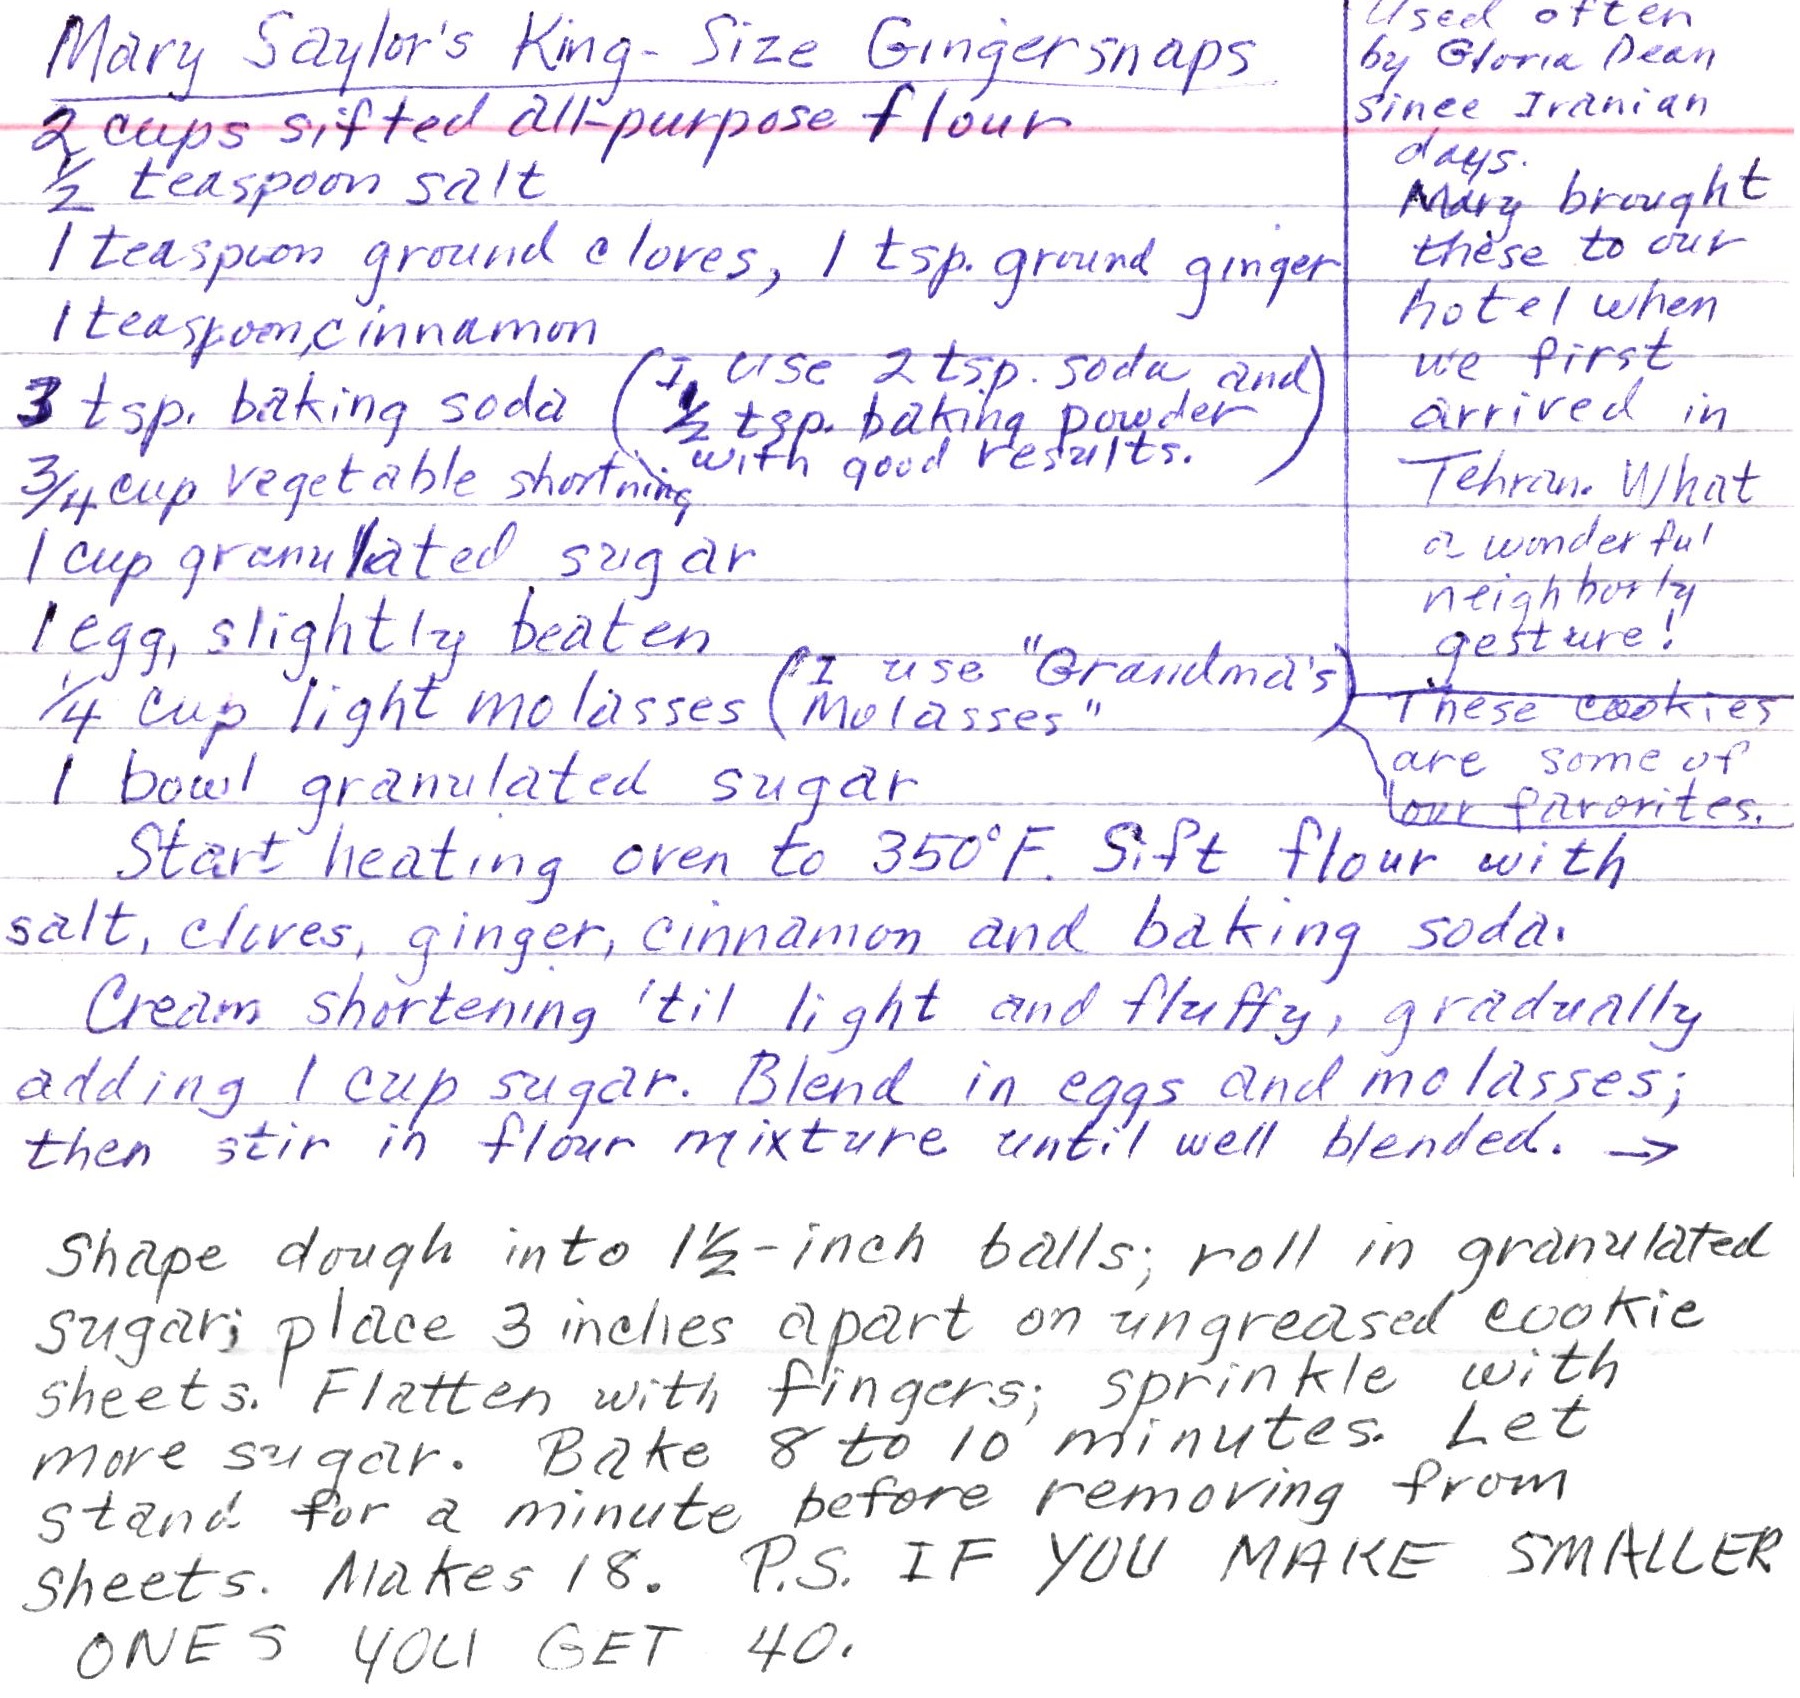 Mary Saylor's King-Size Gingersnaps
2 cups sifted all-purpose flour
½ teaspoon salt
1 teaspoon ground cloves, 1 tsp. ground ginger
1 teaspoon, cinnamon
3 tsp. baking soda (I use 2 tsp. soda and
½ tsp. baking powder
with good results.)
3/4 cup vegetable shortning
1 cup granulated sugar
1 egg, slightly beaten
1/4 cup light molasses (I use "Grandma's
Molasses")
1 bowl granulated sugar
Used often
by Gloria Dean
since Iranian
days.
Mary brought
these to our
hotel when
we first
arrived in
Tehran. What
a wonderful
neighborly
gesture!
These cookies
are some of
our favorites.
Start heating oven to 350°F. Sift flour with
salt, cloves, ginger, cinnamon and baking soda.
Cream shortening 'til light and fluffy, gradually
adding 1 cup sugar. Blend in eggs and molasses;
then stir in flour mixture until well blended. →
Shape dough into 1½-inch balls; roll in granulated
sugar; place 3 inches apart on ungreased cookie
sheets. Flatten with fingers; sprinkle with
more sugar. Bake 8 to 10 minutes. Let
stand for a minute before removing from
sheets. Makes 18. P.S. IF YOU MAKE SMALLER
ONES YOU GET 40.